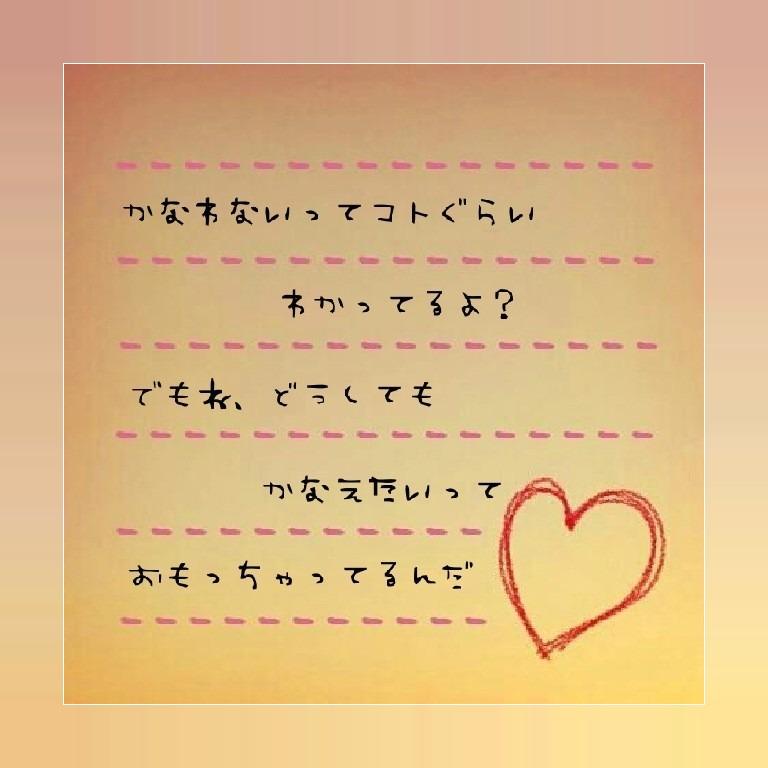 かなわないってコトぐらい
わかってるよ?
でもね、どうしても
かなえたいって
おもっちゃってるんだ